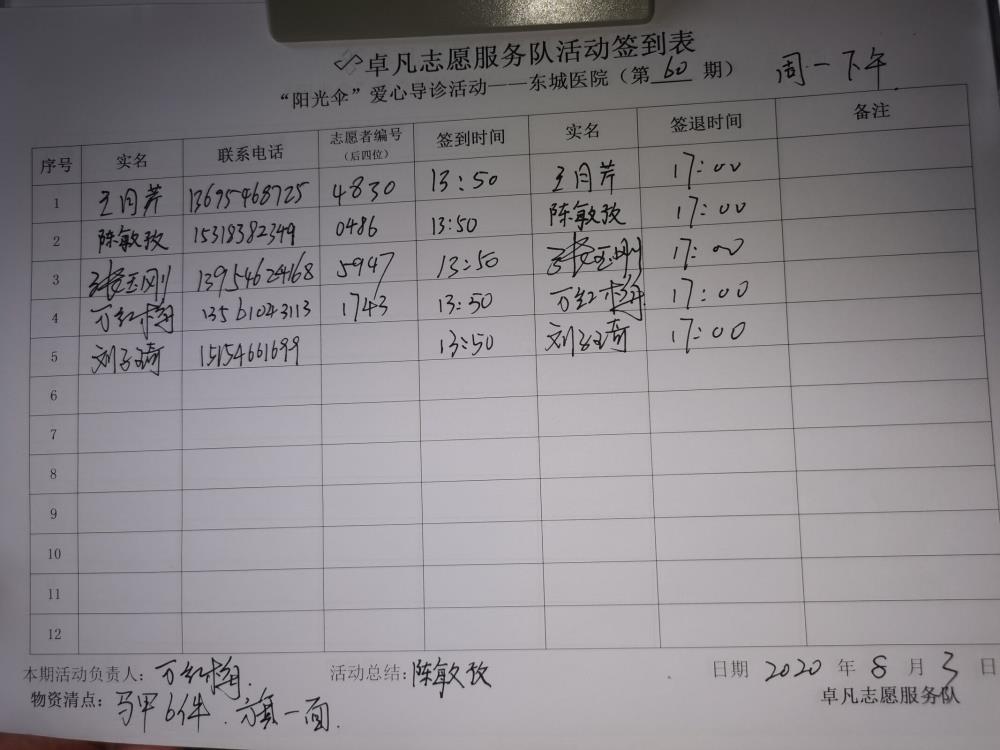 卓凡志愿服务队活动签到表
“阳光伞”爱心导诊活动——东城医院（第 60 期） 周一下午
序号 实名 联系电话 志愿者编号（后四位） 签到时间 实名 签退时间 备注
1 王月芹 13695468725 4830 13:50 王月芹 17:00
2 陈敏孜 15318382349 0486 13:50 陈敏孜 17:00
3 张玉刚 13954624168 5947 13:50 张玉刚 17:00
4 万红梅 13561043113 1743 13:50 万红梅 17:00
5 刘子琦 15154661699 13:50 刘子琦 17:00
6
7
8
9
10
11
12
本期活动负责人：万红梅. 活动总结：陈敏孜 日期 2020 年 8 月 3 日
物资清点：马甲6件.旗一面. 卓凡志愿服务队